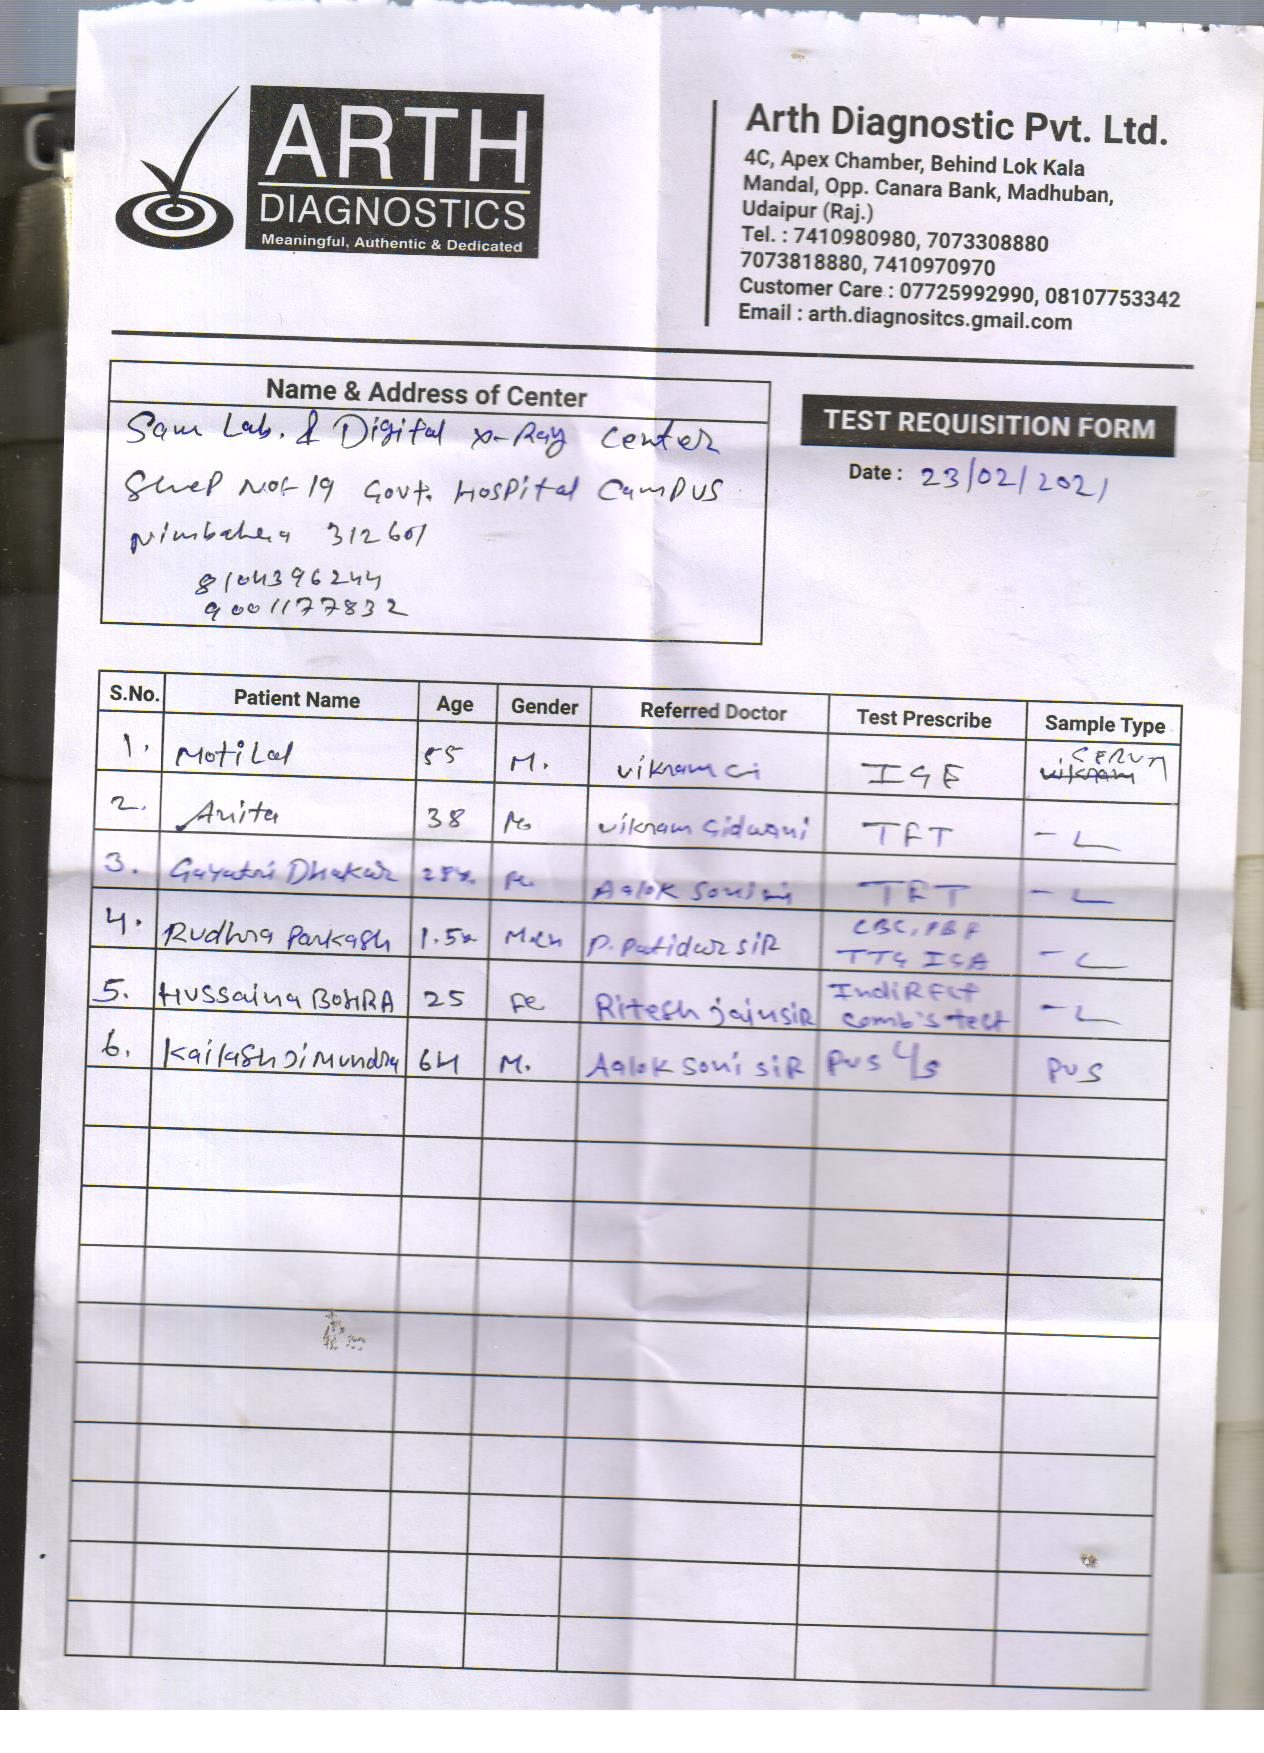 ARTH
DIAGNOSTICS
Meaningful, Authentic & Dedicated
Arth Diagnostic Pvt. Ltd.
4C, Apex Chamber, Behind Lok Kala
Mandal, Opp. Canara Bank, Madhuban,
Udaipur (Raj.)
Tel. : 7410980980, 7073308880
7073818880, 7410970970
Customer Care : 07725992990, 08107753342
Email : arth.diagnositcs.gmail.com
Name & Address of Center
Sam Lab. & Digital X-Ray Center
19 Govt. Hospital Campus
Nimbahera 312601
8104396244
9001177832
TEST REQUISITION FORM
Date : 23/02/2021
S.No. Patient Name Age Gender Referred Doctor Test Prescribe Sample Type
1. Motilal 55 M. vikram IGE SERUM
2. Anita 38 vikram Sidwani TFT
3. Gayatri Dhakar 28 Fe. Aalok Soni TFT
4. Rudhra Parkash 1.5 P. Patidar SiR CBC, PBF
TTG IGA
5. Hussaina BOHRA 25 Fe Ritesh jain SiR IndiRect
comb's test
6. Kailash Ji Mundra 64 M. Aalok Soni SiR Pus C/S Pus